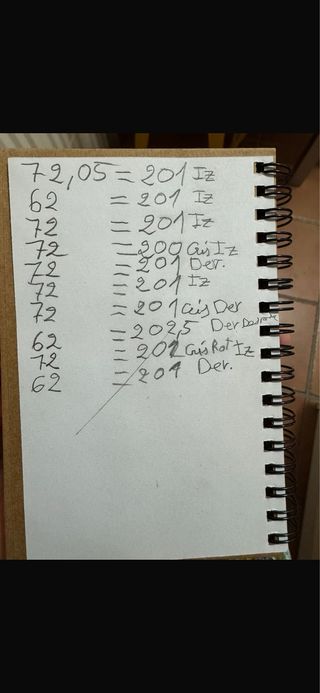 72,05 = 201 Iz
62 = 201 Iz
72 = 201 Iz
72 = 200 Cris Iz
72 = 201 Der.
72 = 201 Iz
72 = 201 Cris Der
62 = 202,5 Der
72 = 202 Cris Rot Iz
62 = 201 Der.